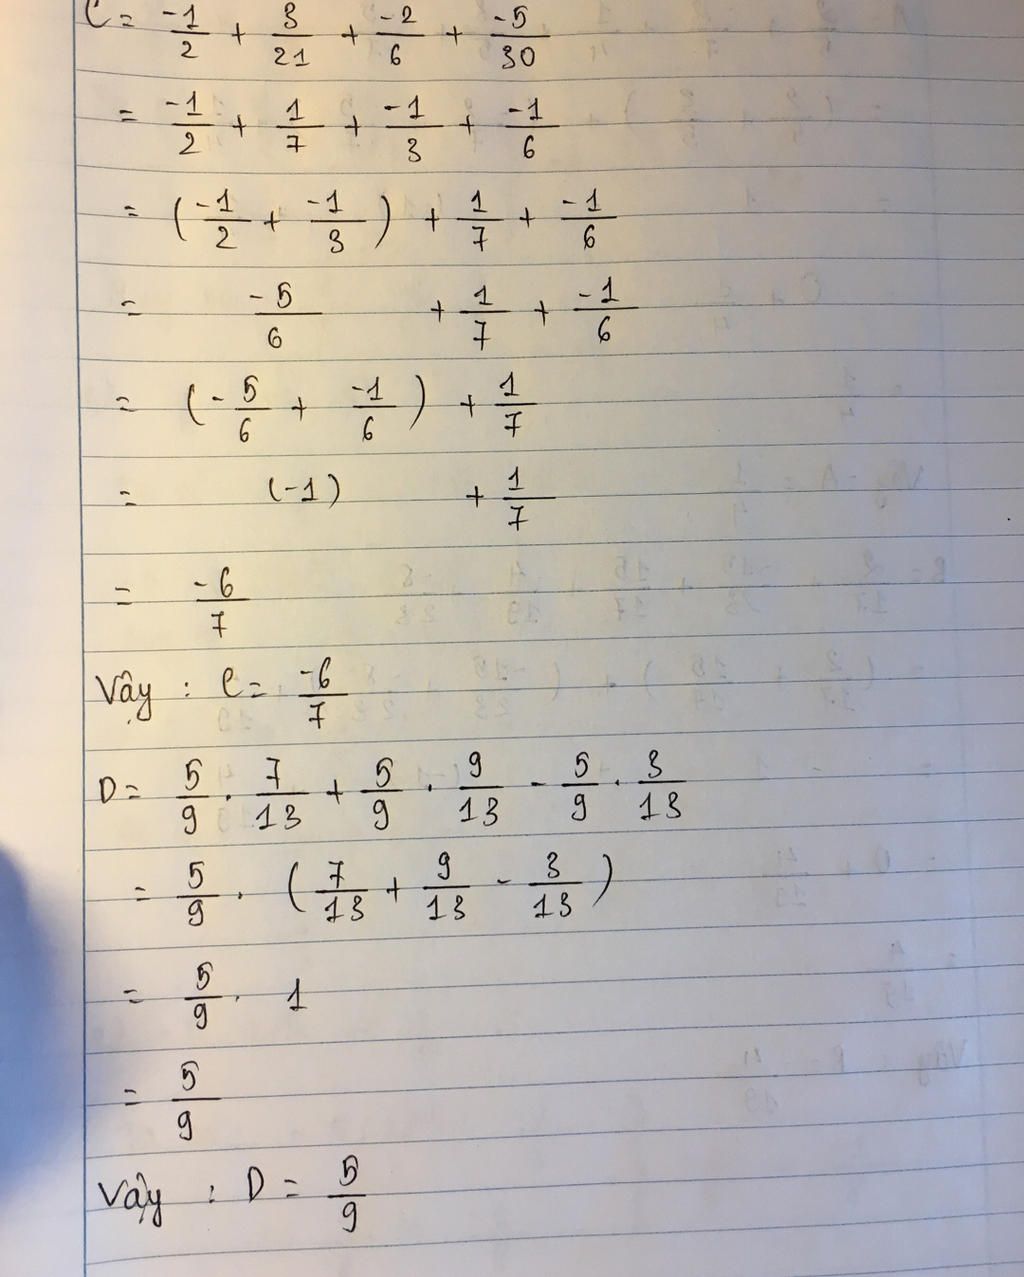 C = -1/2 + 3/21 + -2/6 + -5/30
= -1/2 + 1/7 + -1/3 + -1/6
= (-1/2 + -1/3) + 1/7 + -1/6
= -5/6 + 1/7 + -1/6
= (-5/6 + -1/6) + 1/7
= (-1) + 1/7
= -6/7
Vậy : C = -6/7
D = 5/9 . 7/13 + 5/9 . 9/13 - 5/9 . 3/13
= 5/9 . (7/13 + 9/13 - 3/13)
= 5/9 . 1
= 5/9
Vậy : D = 5/9